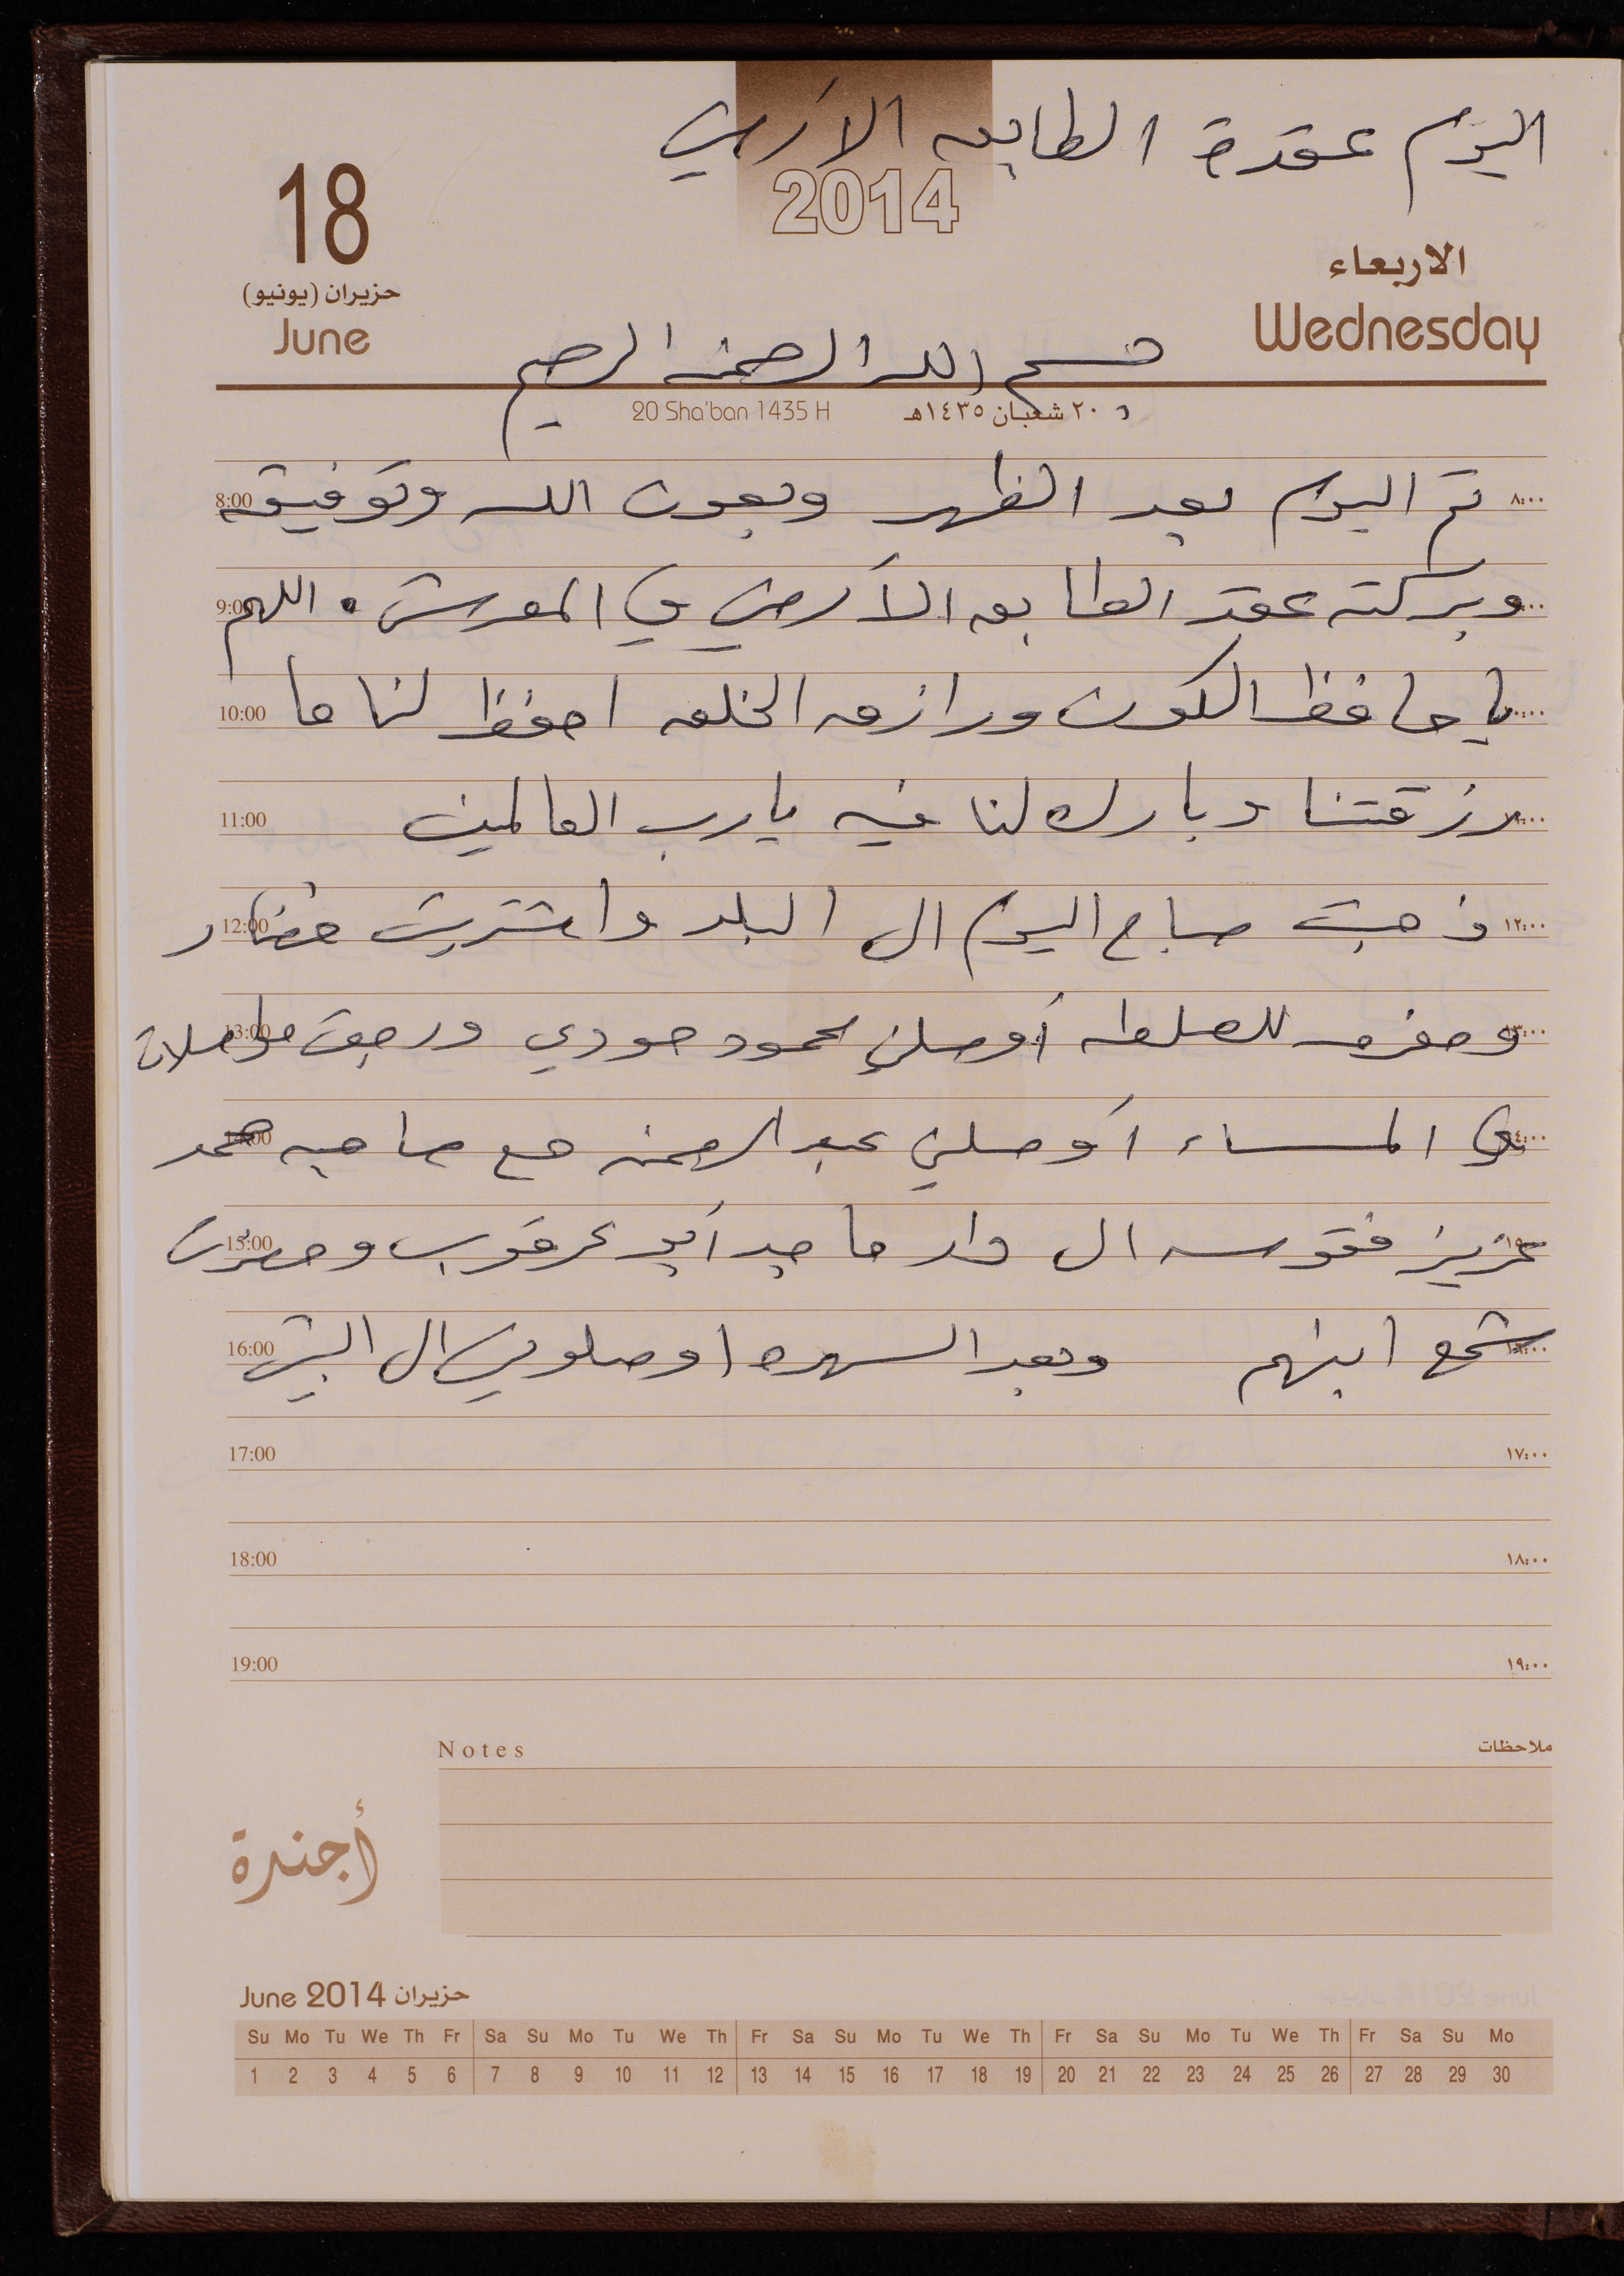 اليوم عقدة الطابق الأرضي
2014
18
حزيران (يونيو)
June
الاربعاء
Wednesday
بسم الله الرحمن الرحيم
20 Sha'ban 1435 H
٢٠ شعبان ١٤٣٥هـ
8:00 تم اليوم بعد الظهر وبعون الله وتوفيقه ٨:٠٠
9:00 وبركته عقد الطابق الأرضي في المعرش . اللهم
10:00 يا حافظ الكون ورازق الخلق احفظ لنا ما
11:00 رزقتنا وبارك لنا فيه يا رب العالمين
12:00 ذهبت صباح اليوم ال البلد واشتريت خضار ١٢:٠٠
13:00 أوصلني محمود حودي ورجعت مواصلات
14:00 المساء أوصلني عبد الرحمن مع صاحبه محمد
15:00 عزيز فقوسه ال دار ماجد أبو عرقوب وحضرت
16:00 ابنهم وبعد السهره اوصلوني ال البيت
17:00 ١٧:٠٠
18:00 ١٨:٠٠
19:00 ١٩:٠٠
Notes ملاحظات
أجندة
June 2014 حزيران
Su Mo Tu We Th Fr Sa Su Mo Tu We Th Fr Sa Su Mo Tu We Th Fr Sa Su Mo Tu We Th Fr Sa Su Mo
1 2 3 4 5 6 7 8 9 10 11 12 13 14 15 16 17 18 19 20 21 22 23 24 25 26 27 28 29 30